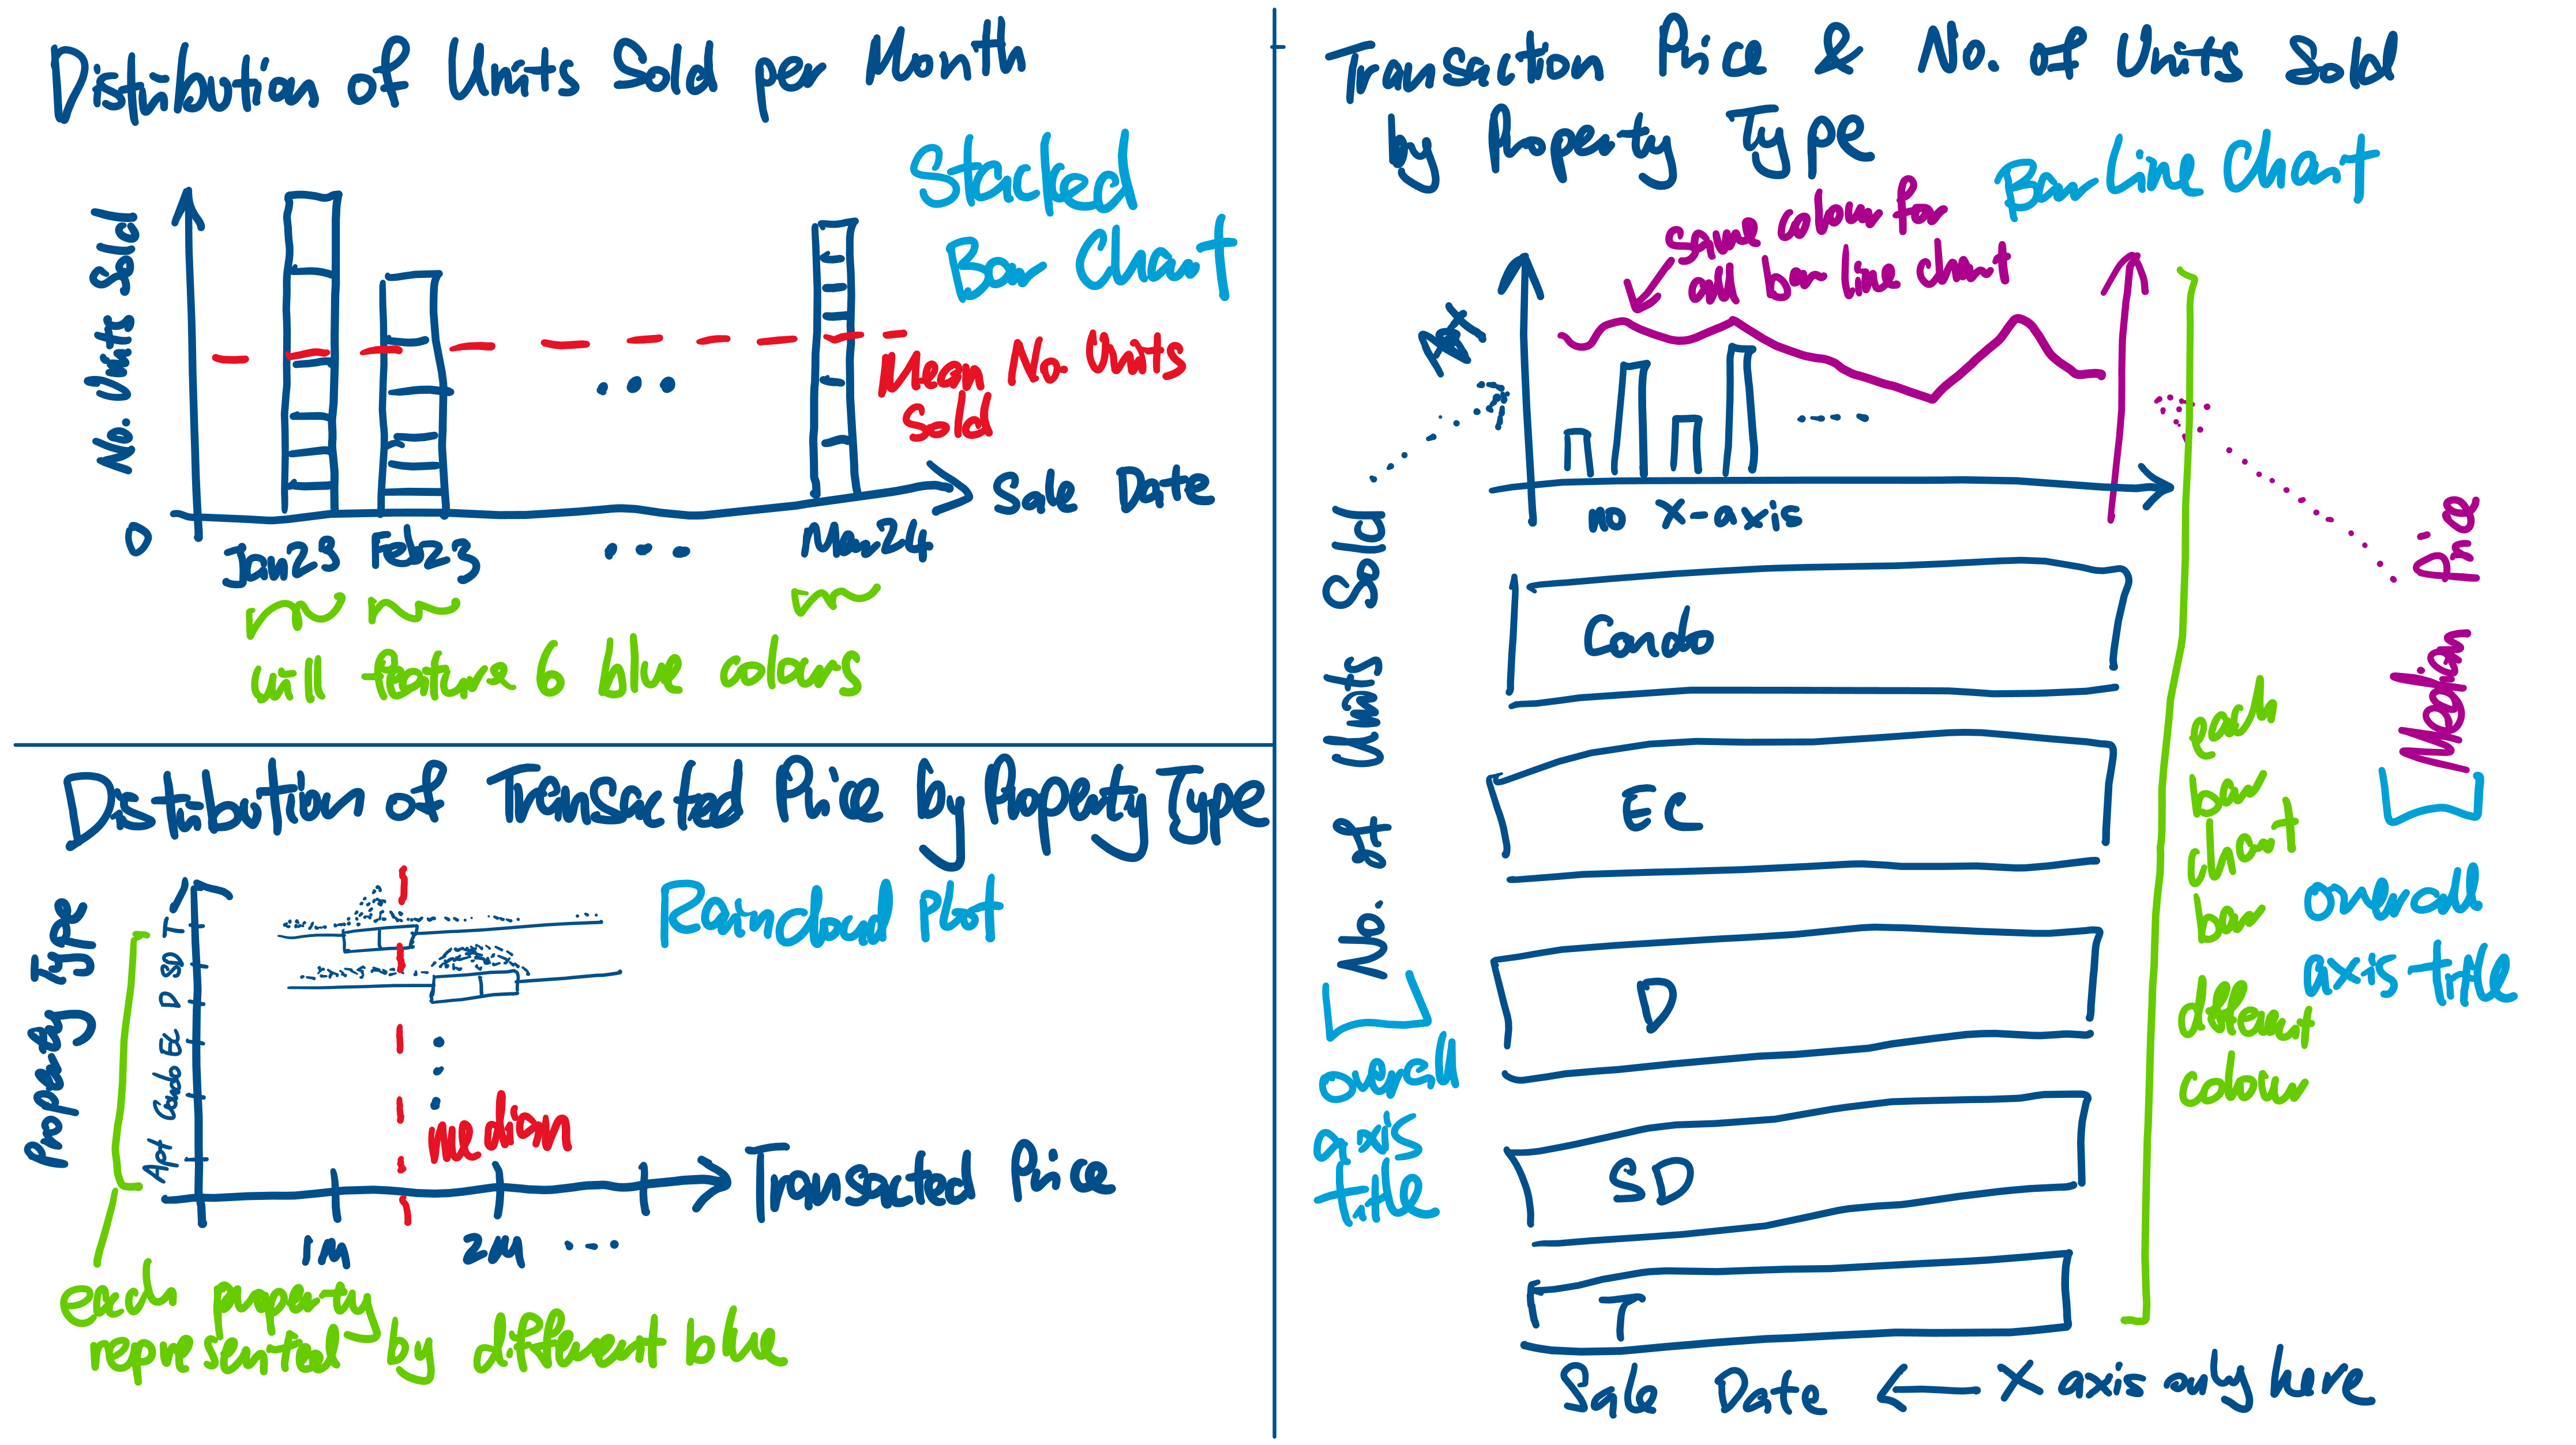 Distribution of Units Sold per Month
Stacked
Bar Chart
No. Units Sold
Mean No. Units
Sold
Sale Date
0
Jan23 Feb23 ... Mar24
will feature 6 blue colours
Distribution of Transacted Price by Property Type
Raincloud Plot
Property Type
T
SD
D
EC
Condo
Apt
median
Transacted Price
1M 2M ...
each property
represented by different blue
Transaction Price & No. of Units Sold
by Property Type
Bar Line Chart
same colour for
all bar line chart
Apt
no X-axis
Condo
EC
D
SD
T
No. of Units Sold
overall
axis
title
Median Price
overall
axis title
each
bar
chart
bar
different
colour
Sale Date ← X axis only here